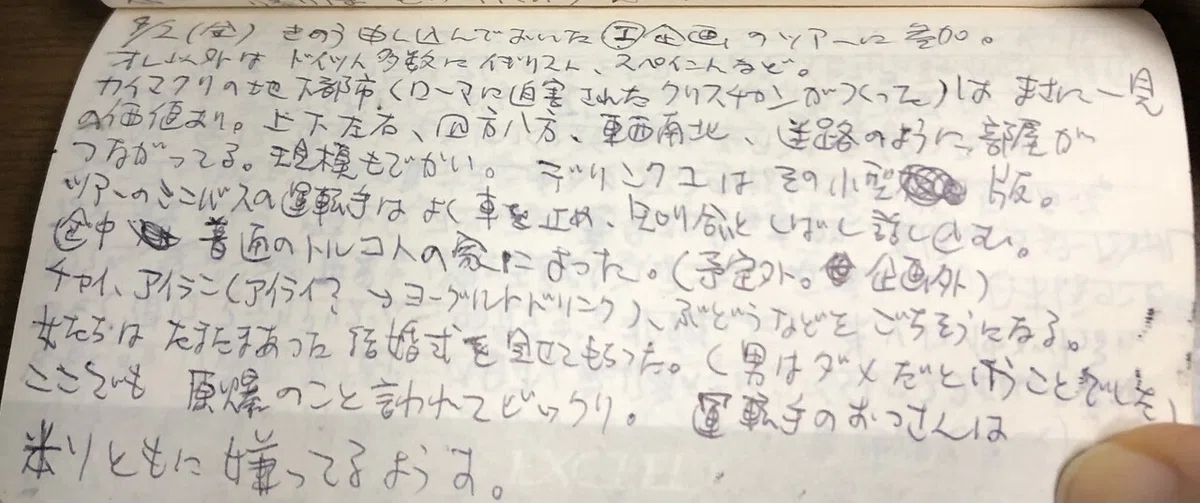 8/2(金) きのう申し込んでおいた㋓企画のツアーに参加。
オレ以外はドイツ人多数にイギリス人、スペイン人など。
カイマクリの地下都市(ローマに迫害されたクリスチャンがつくった)はまさに一見
の価値あり。上下左右、四方八方、東西南北、迷路のように部屋が
つながってる。規模もでかい。デリンクユはその小型版。
ツアーのミニバスの運転手はよく車を止め、知り合いとしばし話し込む。
途中 普通のトルコ人の家によった。(予定外。企画外)
チャイ、アイラン(アイライ?→ヨーグルトドリンク)、ぶどうなどをごちそうになる。
女たちはたまたまあった結婚式を見せてもらった。(男はダメだということでした)
ここでも 原爆のこと言われてビックリ。運転手のおっさんは
米ソともに嫌ってるようす。
EXCEL